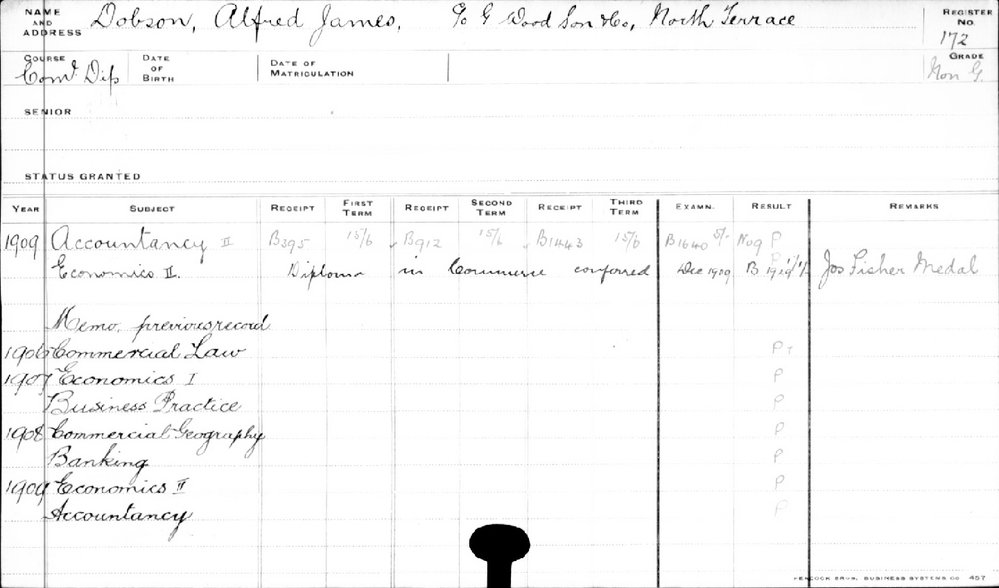 NAME AND ADDRESS Dobson, Alfred James, c/o G Wood Son & Co, North Terrace REGISTER No. 172
COURSE Coml Dip DATE OF BIRTH DATE OF MATRICULATION GRADE Non G.
SENIOR
STATUS GRANTED
YEAR SUBJECT RECEIPT FIRST TERM RECEIPT SECOND TERM RECEIPT THIRD TERM EXAMN. RESULT REMARKS
1909 Accountancy II B395 15/6 B912 15/6 B1443 15/6 B1640 5/- No9 P
Economics II. Diploma in Commerce conferred Dec 1909 B Jos Fisher Medal
Memo. previous record
1906 Commercial Law P
1907 Economics I P
Business Practice P
1908 Commercial Geography P
Banking P
1909 Economics II P
Accountancy P
PEACOCK BROS. BUSINESS SYSTEMS CO. 457